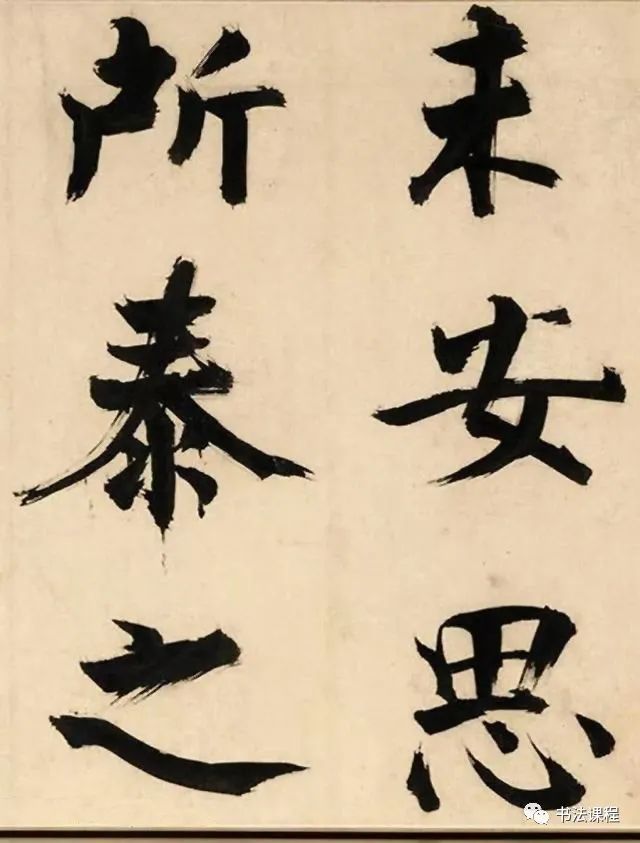 未安思
所泰之
书法课程